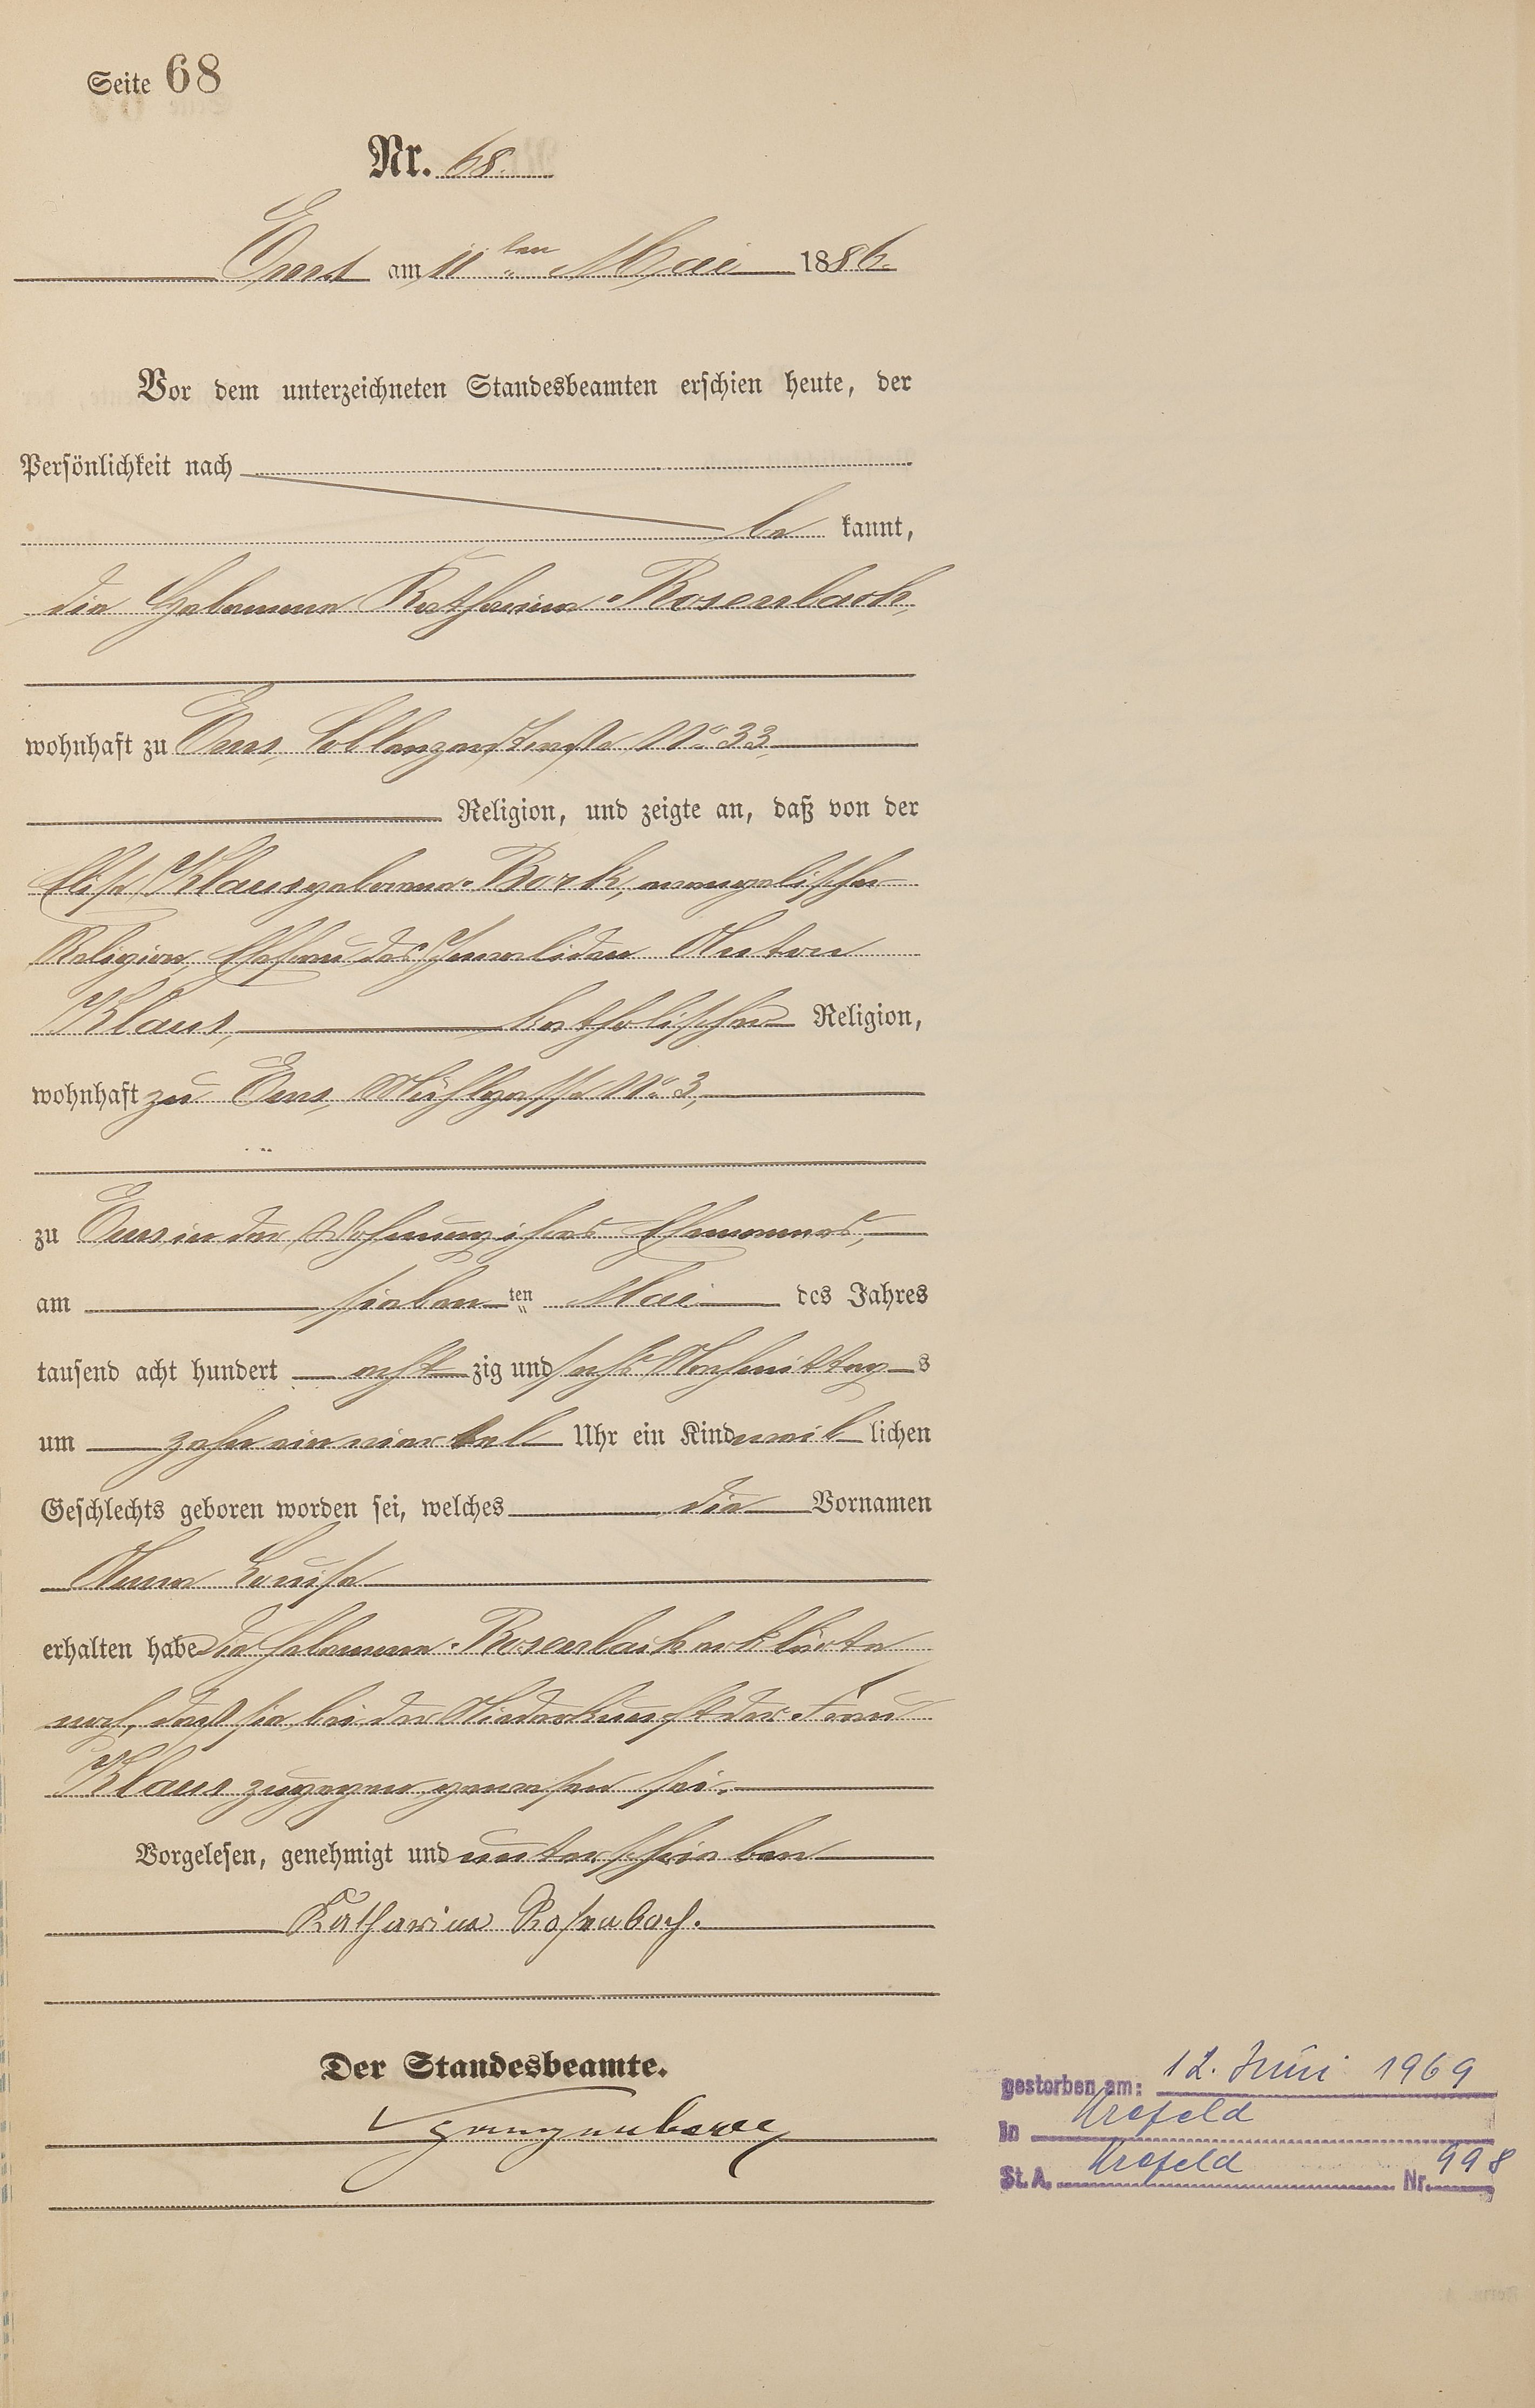 Seite 68
Nr. 68.
Ems am 11ten Mai 1886.
Vor dem unterzeichneten Standesbeamten erschien heute, der
Persönlichkeit nach
be kannt,
die Hebamme Katharina Rosenbach,
wohnhaft zu Ems, Coblenzerstraße No. 33,
Religion, und zeigte an, daß von der
Elise Klaus geborene Bork, evangelischer
Religion, Ehefrau des Invaliden Anton
Klaus, katholischer Religion,
wohnhaft zu Ems, Mühlgasse No. 3,
zu Ems in der Wohnung ihres Ehemannes,
am sieben ten Mai des Jahres
tausend acht hundert acht zig und sechs Nachmittag s
um zehn ein viertel Uhr ein Kind weib lichen
Geschlechts geboren worden sei, welches die Vornamen
Anna Louise
erhalten habe Die Hebamme Rosenbach erklärte
noch, daß sie bei der Niederkunft der Frau
Klaus zugegen gewesen sei.
Vorgelesen, genehmigt und unterschrieben
Katharina Rosenbach.
Der Standesbeamte.
gestorben am: 12. Juni 1969
in Krefeld
St. A. Krefeld Nr. 998